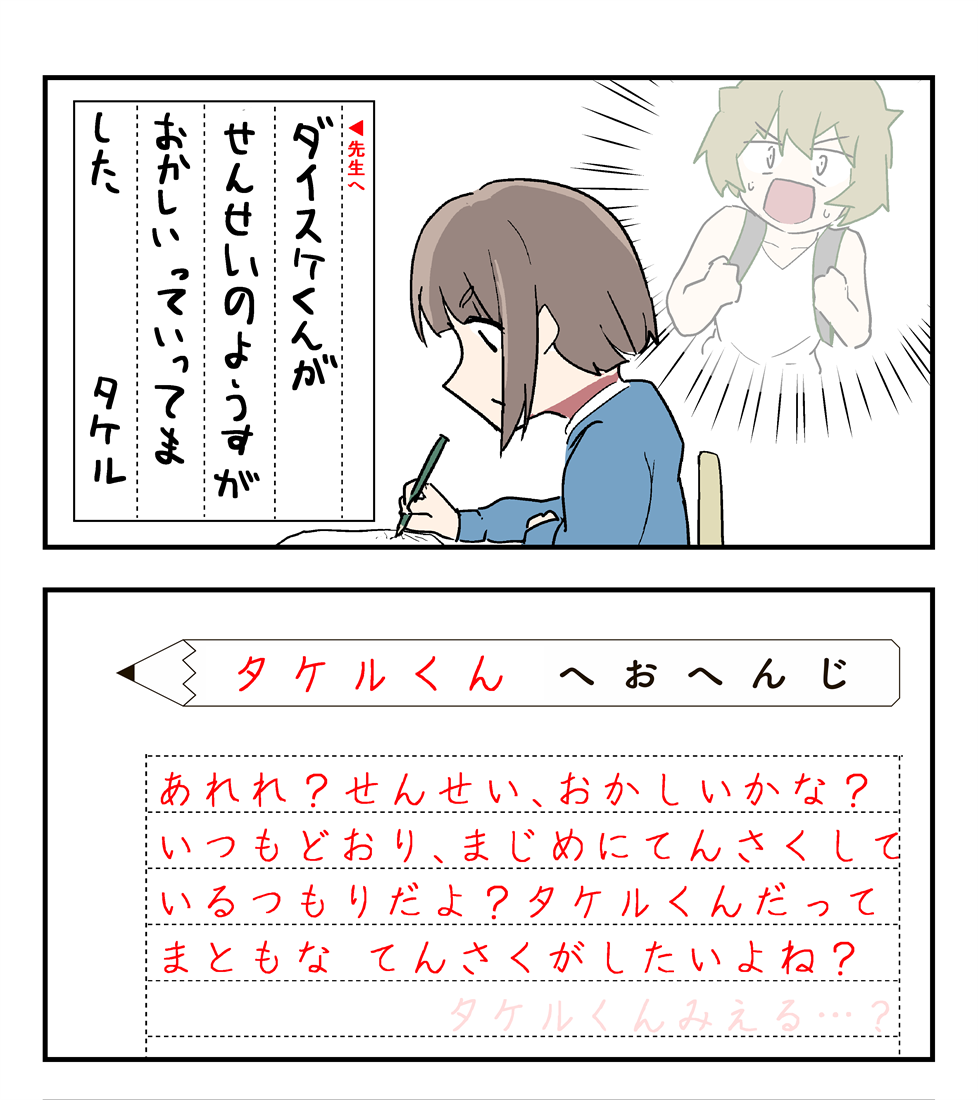 ◀先生へ
ダイスケくんが
せんせいのようすが
おかしいっていってま
した
タケル
タケルくんへおへんじ
あれれ？せんせい、おかしいかな？
いつもどおり、まじめにてんさくして
いるつもりだよ？タケルくんだって
まともな てんさくがしたいよね？
タケルくんみえる…？